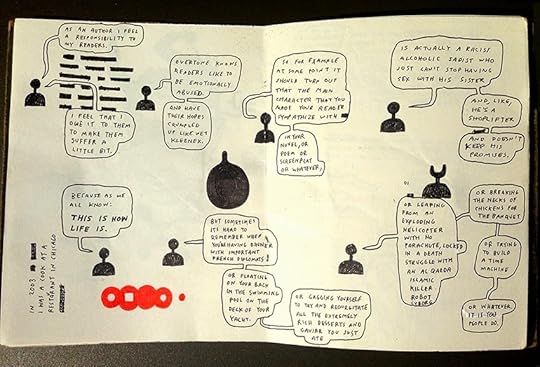 AS AN AUTHOR I FEEL
A RESPONSIBILITY TO
MY READERS.
I FEEL THAT I
OWE IT TO THEM
TO MAKE THEM
SUFFER A
LITTLE BIT.
EVERYONE KNOWS
READERS LIKE TO
BE EMOTIONALLY
ABUSED.
AND HAVE
THEIR HOPES
CRUMPLED UP
LIKE WET
KLEENEX.
SO FOR EXAMPLE
AT SOME POINT IT
SHOULD TURN OUT
THAT THE MAIN
CHARACTER THAT YOU
MADE YOUR READER
SYMPATHIZE WITH
IN YOUR
NOVEL, OR
POEM OR
SCREENPLAY
OR WHATEVER,
IS ACTUALLY A RACIST
ALCOHOLIC SADIST WHO
JUST CAN'T STOP HAVING
SEX WITH HIS SISTER.
AND, LIKE,
HE'S A
SHOPLIFTER
AND DOESN'T
KEEP HIS
PROMISES.
BECAUSE AS WE
ALL KNOW:
THIS IS HOW
LIFE IS.
BUT SOMETIMES
IT'S HARD TO
REMEMBER WHEN
YOU'RE HAVING DINNER
WITH IMPORTANT
FRENCH DIPLOMATS!
OR FLOATING
ON YOUR BACK
IN THE SWIMMING
POOL ON THE
DECK OF YOUR
YACHT.
OR GAGGING YOURSELF
TO TRY AND REGURGITATE
ALL THE EXTREMELY
RICH DESSERTS AND
CAVIAR YOU JUST
ATE
OR LEAPING
FROM AN
EXPLODING
HELICOPTER
WITH NO
PARACHUTE, LOCKED
IN A DEATH
STRUGGLE WITH
AN AL QAEDA
ISLAMIC
KILLER
ROBOT
CYBORG
OR BREAKING
THE NECKS OF
CHICKENS FOR
THE BANQUET
OR TRYING
TO BUILD
A TIME
MACHINE
OR WHATEVER
IT IS YOU
PEOPLE DO.
IN 2005
I WAS A COOK AT A
RESTORANT IN CHICAGO